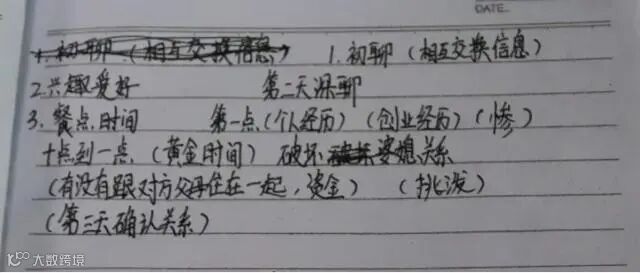 DATE
1. 初聊 (相互交换信息) 1. 初聊 (相互交换信息)
2. 兴趣爱好 第二天深聊
3. 餐点时间 第一点 (个人经历) (创业经历) (惨)
十点到一点 (黄金时间) 破坏 婆媳关系
(有没有跟对方父母住在一起, 资金) (挑泼)
(第三天确认关系)
大数跨境